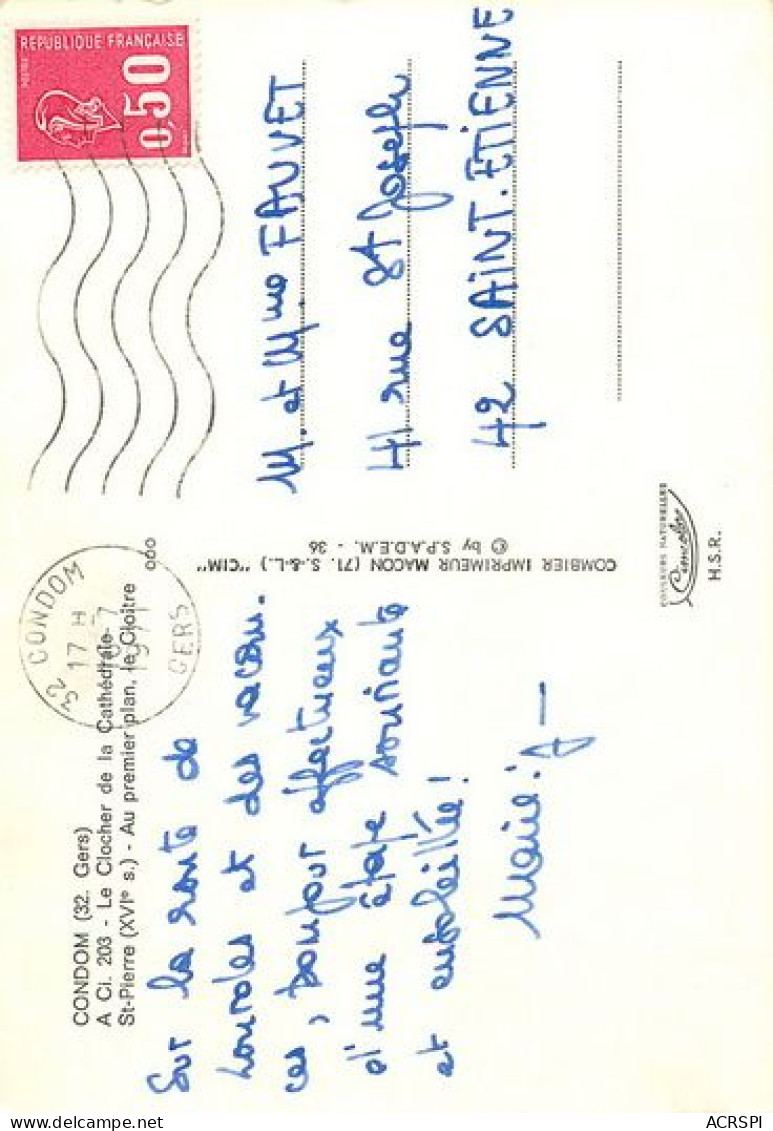 CONDOM (32. Gers)
A Ci. 203 - Le Clocher de la Cathédrale
St-Pierre (XVIe s.) - Au premier plan, le Cloître
Sur la route de
Lourdes et des vacan-
ces, bonjour affectueux
d'une étape souriante
et ensoleillée !
32 CONDOM
17 H
GERS
REPUBLIQUE FRANÇAISE
POSTES
0,50
M. et Mme FAUVET
41 rue St Joseph
42 SAINT-ETIENNE
COMBIER IMPRIMEUR MACON (71. S.-&-L.) "CIM"
© by S.P.A.D.E.M. - 36
COULEURS NATURELLES
H.S.R.
ACRSPI